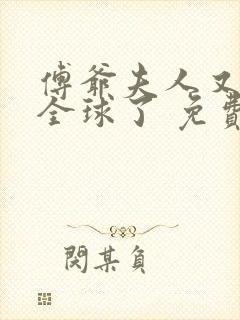 傅爺夫人又
全球了 免費
閱某負